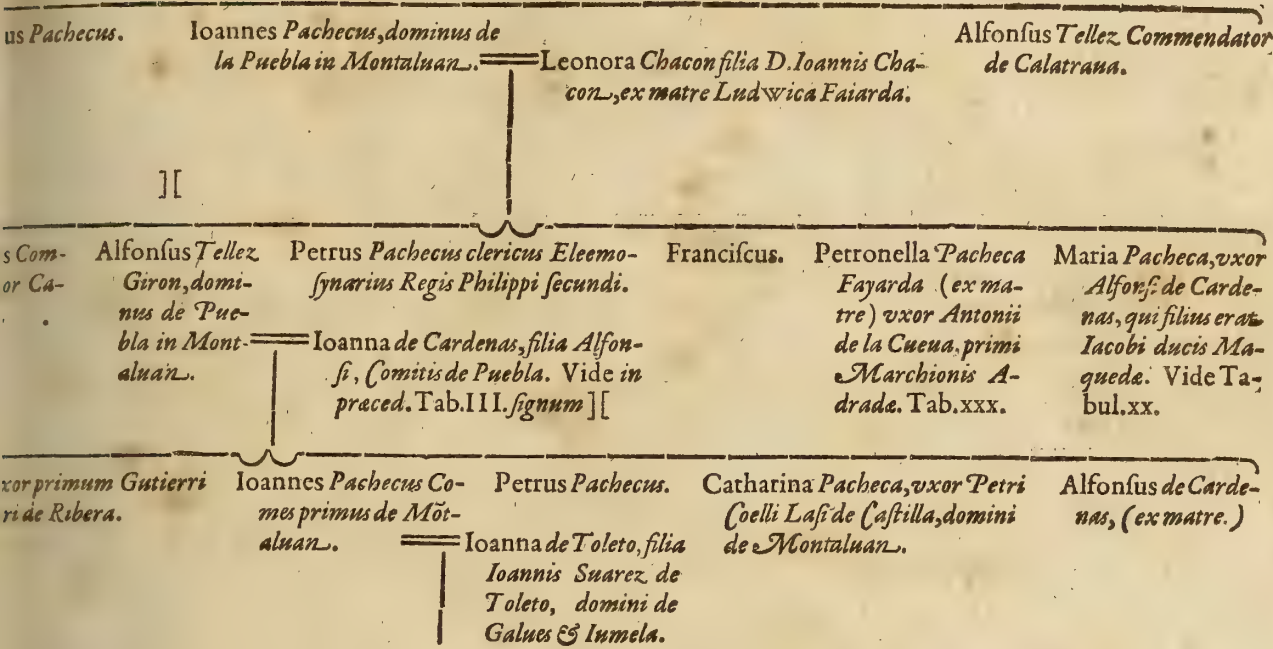 us Pachecus.
Ioannes Pachecus, dominus de
la Puebla in Montaluan.
Leonora Chacon filia D. Ioannis Cha-
con, ex matre Ludwica Faiarda.
Alfonſus Tellez Commendator
de Calatraua.
][
s Com-
or Ca-
Alfonſus Tellez
Giron, domi-
nus de Pue-
bla in Mont-
aluan.
Petrus Pachecus clericus Eleemo-
ſynarius Regis Philippi ſecundi.
Ioanna de Cardenas, filia Alfon-
ſi, Comitis de Puebla. Vide in
præced. Tab. III. ſignum ][
Franciſcus.
Petronella Pacheca
Fayarda (ex ma-
tre) vxor Antonii
de la Cueua, primi
Marchionis A-
dradæ. Tab. xxx.
Maria Pacheca, vxor
Alfonſi de Carde-
nas, qui filius erat
Iacobi ducis Ma-
quedæ. Vide Ta-
bul. xx.
xor primum Gutierri
ri de Ribera.
Ioannes Pachecus Co-
mes primus de Mõt-
aluan.
Ioanna de Toleto, filia
Ioannis Suarez de
Toleto, domini de
Galues & Iumela.
Petrus Pachecus.
Catharina Pacheca, vxor Petri
Coelli Laſi de Caſtilla, domini
de Montaluan.
Alfonſus de Carde-
nas, (ex matre.)